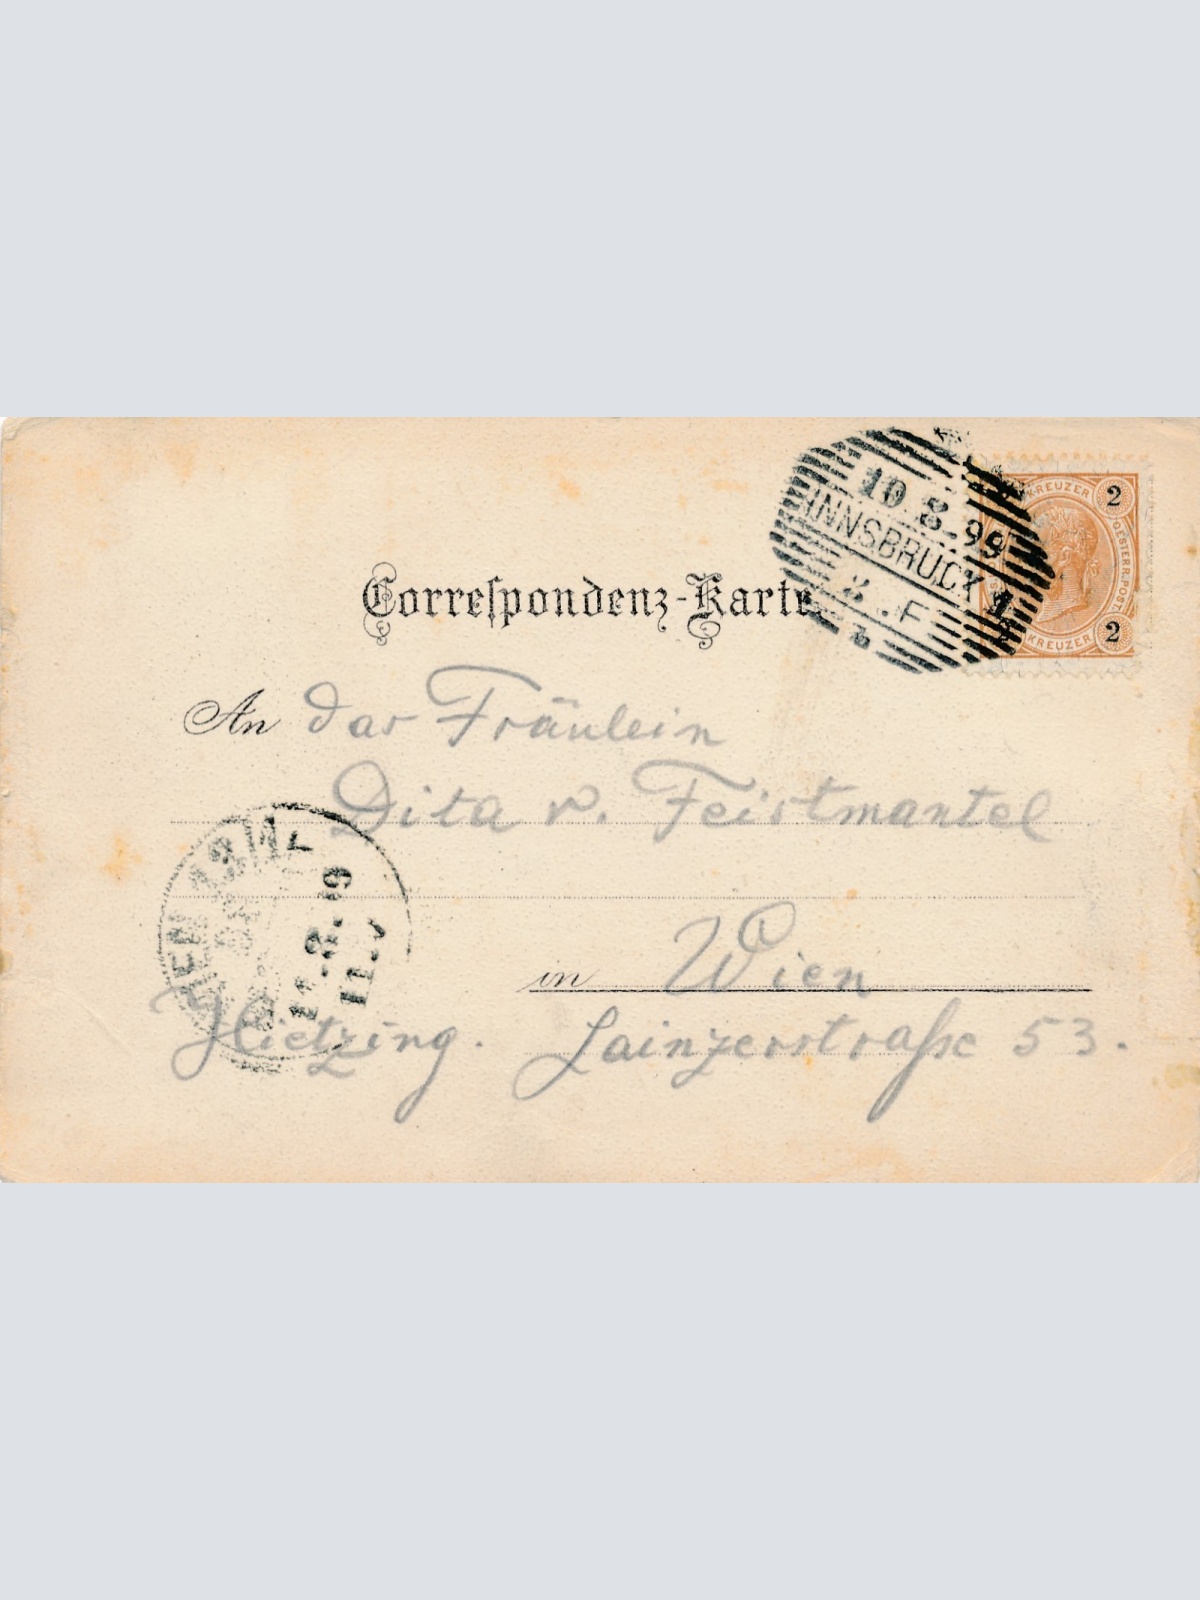 10 8 99
INNSBRUCK 1
8. F
KREUZER 2
OESTERR. POST.
KREUZER 2
Correſpondenz-Karte
An das Fräulein
Dita v. Feistmantel
in Wien
Hietzing. Lainzerstraße 53.
WIEN 13/1
11. 8. 99
11. V